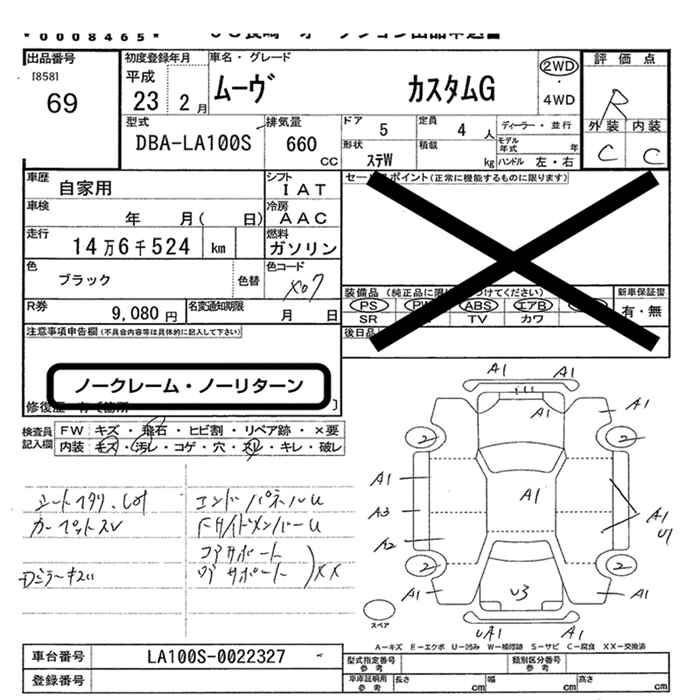 *0008465*
出品番号
[858]
69
初度登録年月
平成
23 2月
車名・グレード
ムーヴ カスタムG
2WD
・
4WD
評価点
R
外装 内装
C C
型式
DBA-LA100S
排気量
660
cc
ドア 5
定員 4 人
ディーラー・並行
モデル年式 年
形状 ステW
積載 kg
ハンドル 左・右
車歴 自家用
シフト IAT
車検 年 月( 日)
冷房 AAC
走行 14万6千524 km
燃料 ガソリン
色 ブラック 色替
色コード X07
R券 9,080円
名変通知期限 月 日
セールスポイント(正常に機能するものに限ります)
装備品 (純正品に限
つけてください)
PS PW ABS エアB
SR TV カワ
新車保証書
有・無
後日品
注意事項申告欄(不具合内容等は具体的に記入して下さい)
ノークレーム・ノーリターン
修復歴
検査員記入欄
FW キズ・飛石・ヒビ割・リペア跡・×要
内装 キズ・汚レ・コゲ・穴・スレ・キレ・破レ
エンドパネルU
カーペットスV
FサイドメンバーU
コアサポート
サポート XX
Dミラーキズ
A1 A1
A1 A1
2 2
A1
A1
A3
A1
U1
A2
2 2
A1 U3 A1
UA1 A1
スペア
A-キズ E-エクボ U-凹み W-補修跡 S-サビ C-腐食 XX-交換済
車台番号 LA100S-0022327
登録番号
型式指定番号 参考
類別区分番号 参考
車庫証明用 参考
長さ cm
幅 cm
高さ cm